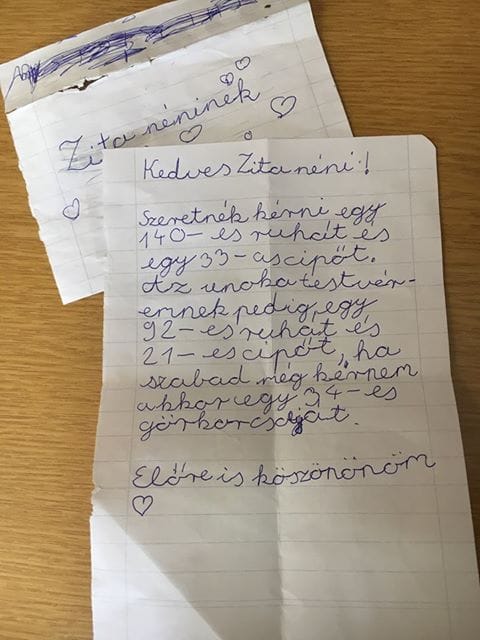 Zita néninek
Kedves Zita néni!
Szeretnék kérni egy
140-es ruhát és
egy 33-as cipőt.
Az unokatestvér-
emnek pedig, egy
92-es ruhát és
21-es cipőt, ha
szabad még kérnem
akkor egy 34-es
görkorcsoját.
Előre is köszönönöm